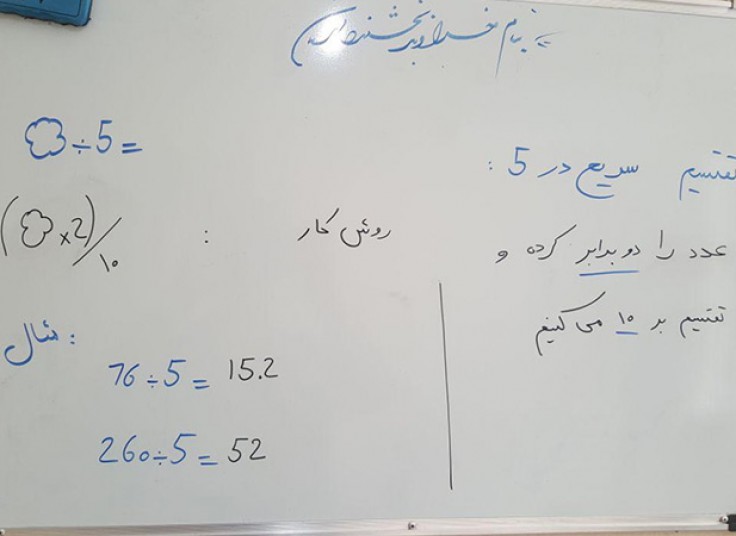 به نام خداوند بخشنده
تقسیم سریع در 5 :
÷ 5 =
عدد را دو برابر کرده و
تقسیم بر ۱۰ می کنیم
روش کار :
( × 2) / ۱۰
مثال :
76 ÷ 5 = 15.2
260 ÷ 5 = 52